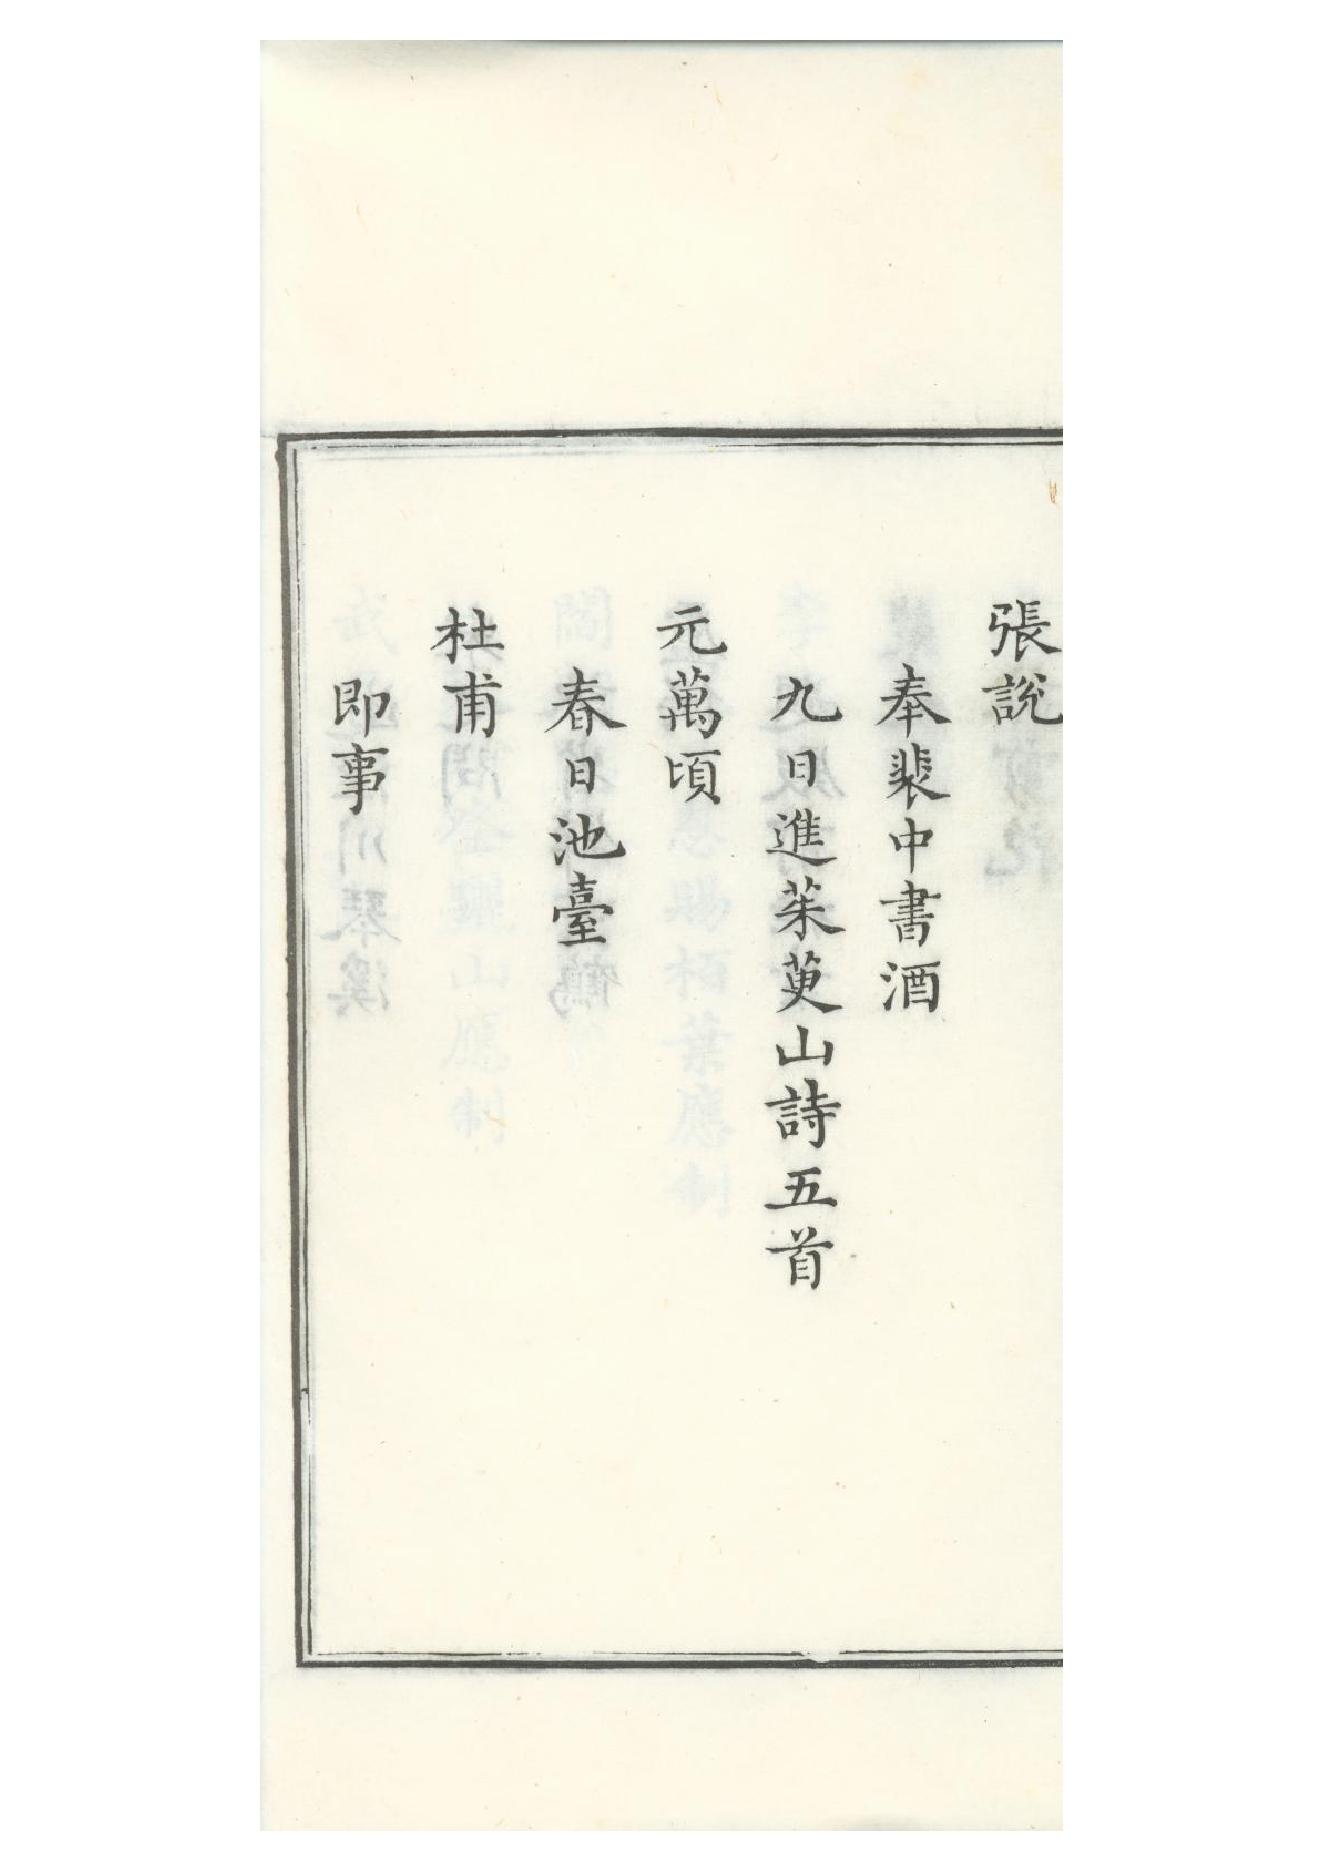 張說
奉裴中書酒
九日進茱萸山詩五首
元萬頃
春日池臺
杜甫
即事